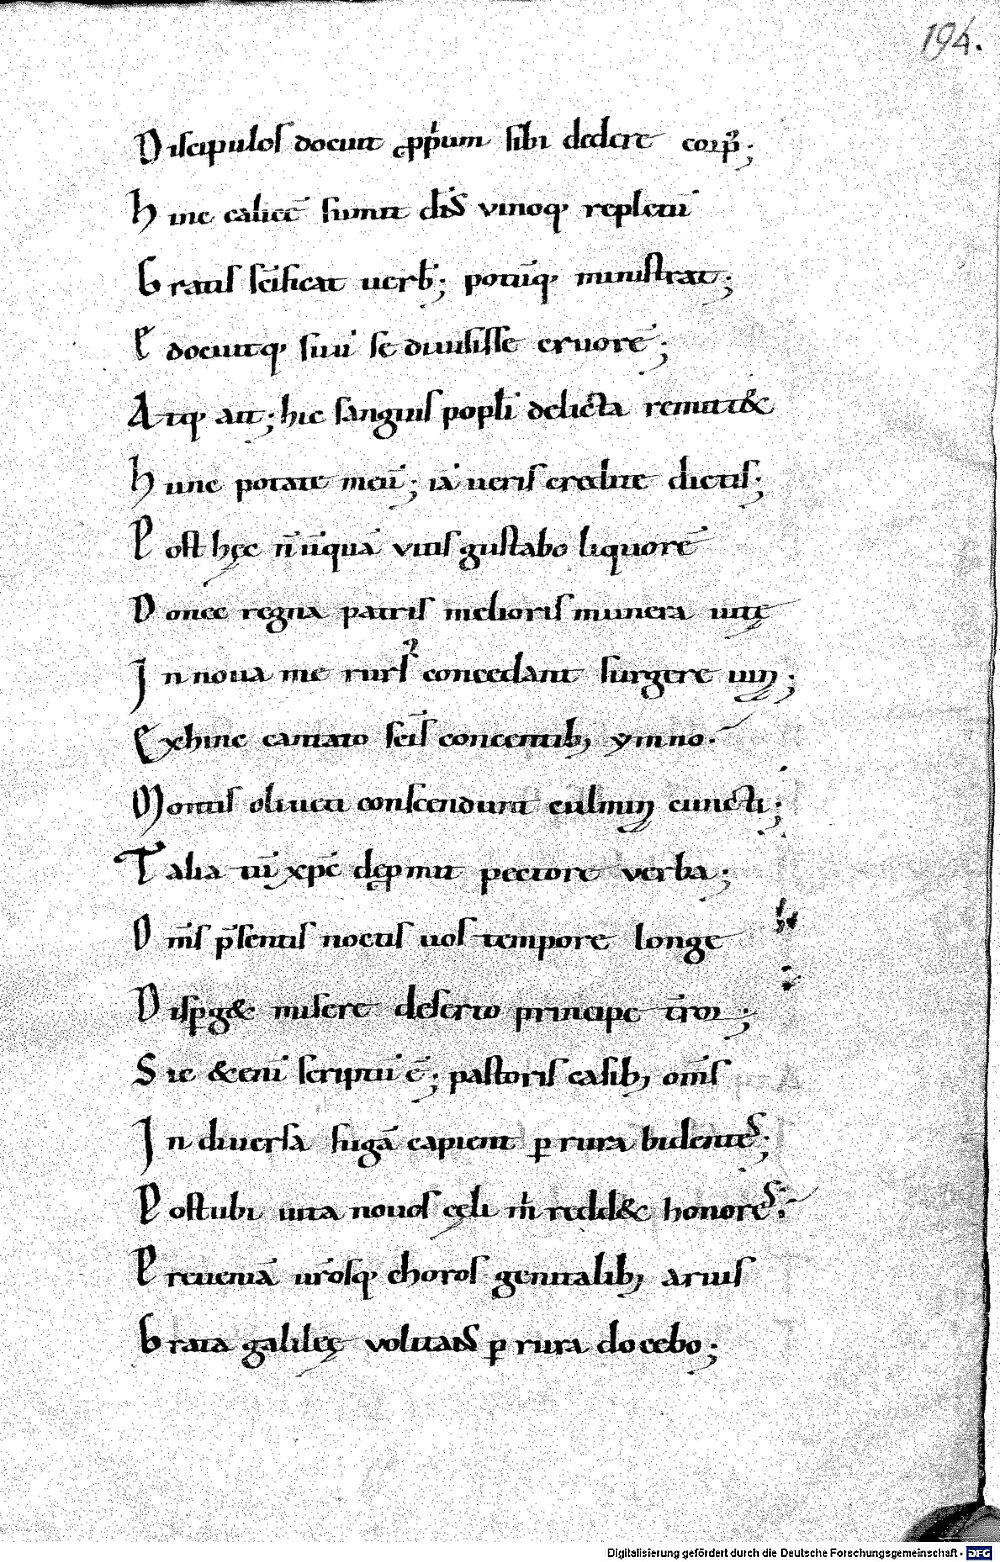 194.
Discipulos docuit ꝓpͥum sibi dedere corpꝰ;
Hinc calicē sumit dn̄s vinoq; repletū
Gratis scīficat uerbī; potūq; ministrat;
Edocuitq; sui se diuisisse cruorē;
Atq; ait; hic sanguis popli delicta remitt&
Hunc potate meū; iā ueris credite dictis;
Post hęc n̄ ūquā vitis gustabo liquorē
Donec regna patris melioris munera uitę
In noua me rursꝰ concedant surgere uinū;
Exhinc cantato scīs concentib; ymno.
Montis oliueti conscendunt culmina cuncti;
Talia tū xp̄c dęp̄mit pectore verba;
Om̄s p̄sentis noctis uos tempore longe
Disp̄g& misere deserto principe t̄ror;
Sic &eni scriptū ē; pastoris casib; om̄s
In diuersa fugā capient ꝑ rura bidentes;
Post ubi uita nouos cęli m̄ redd& honores.
Preueniā ur̄osq; choros genitalib; aruis
Grata galileę volitans ꝑ rura docebo;
Digitalisierung gefördert durch die Deutsche Forschungsgemeinschaft - DFG